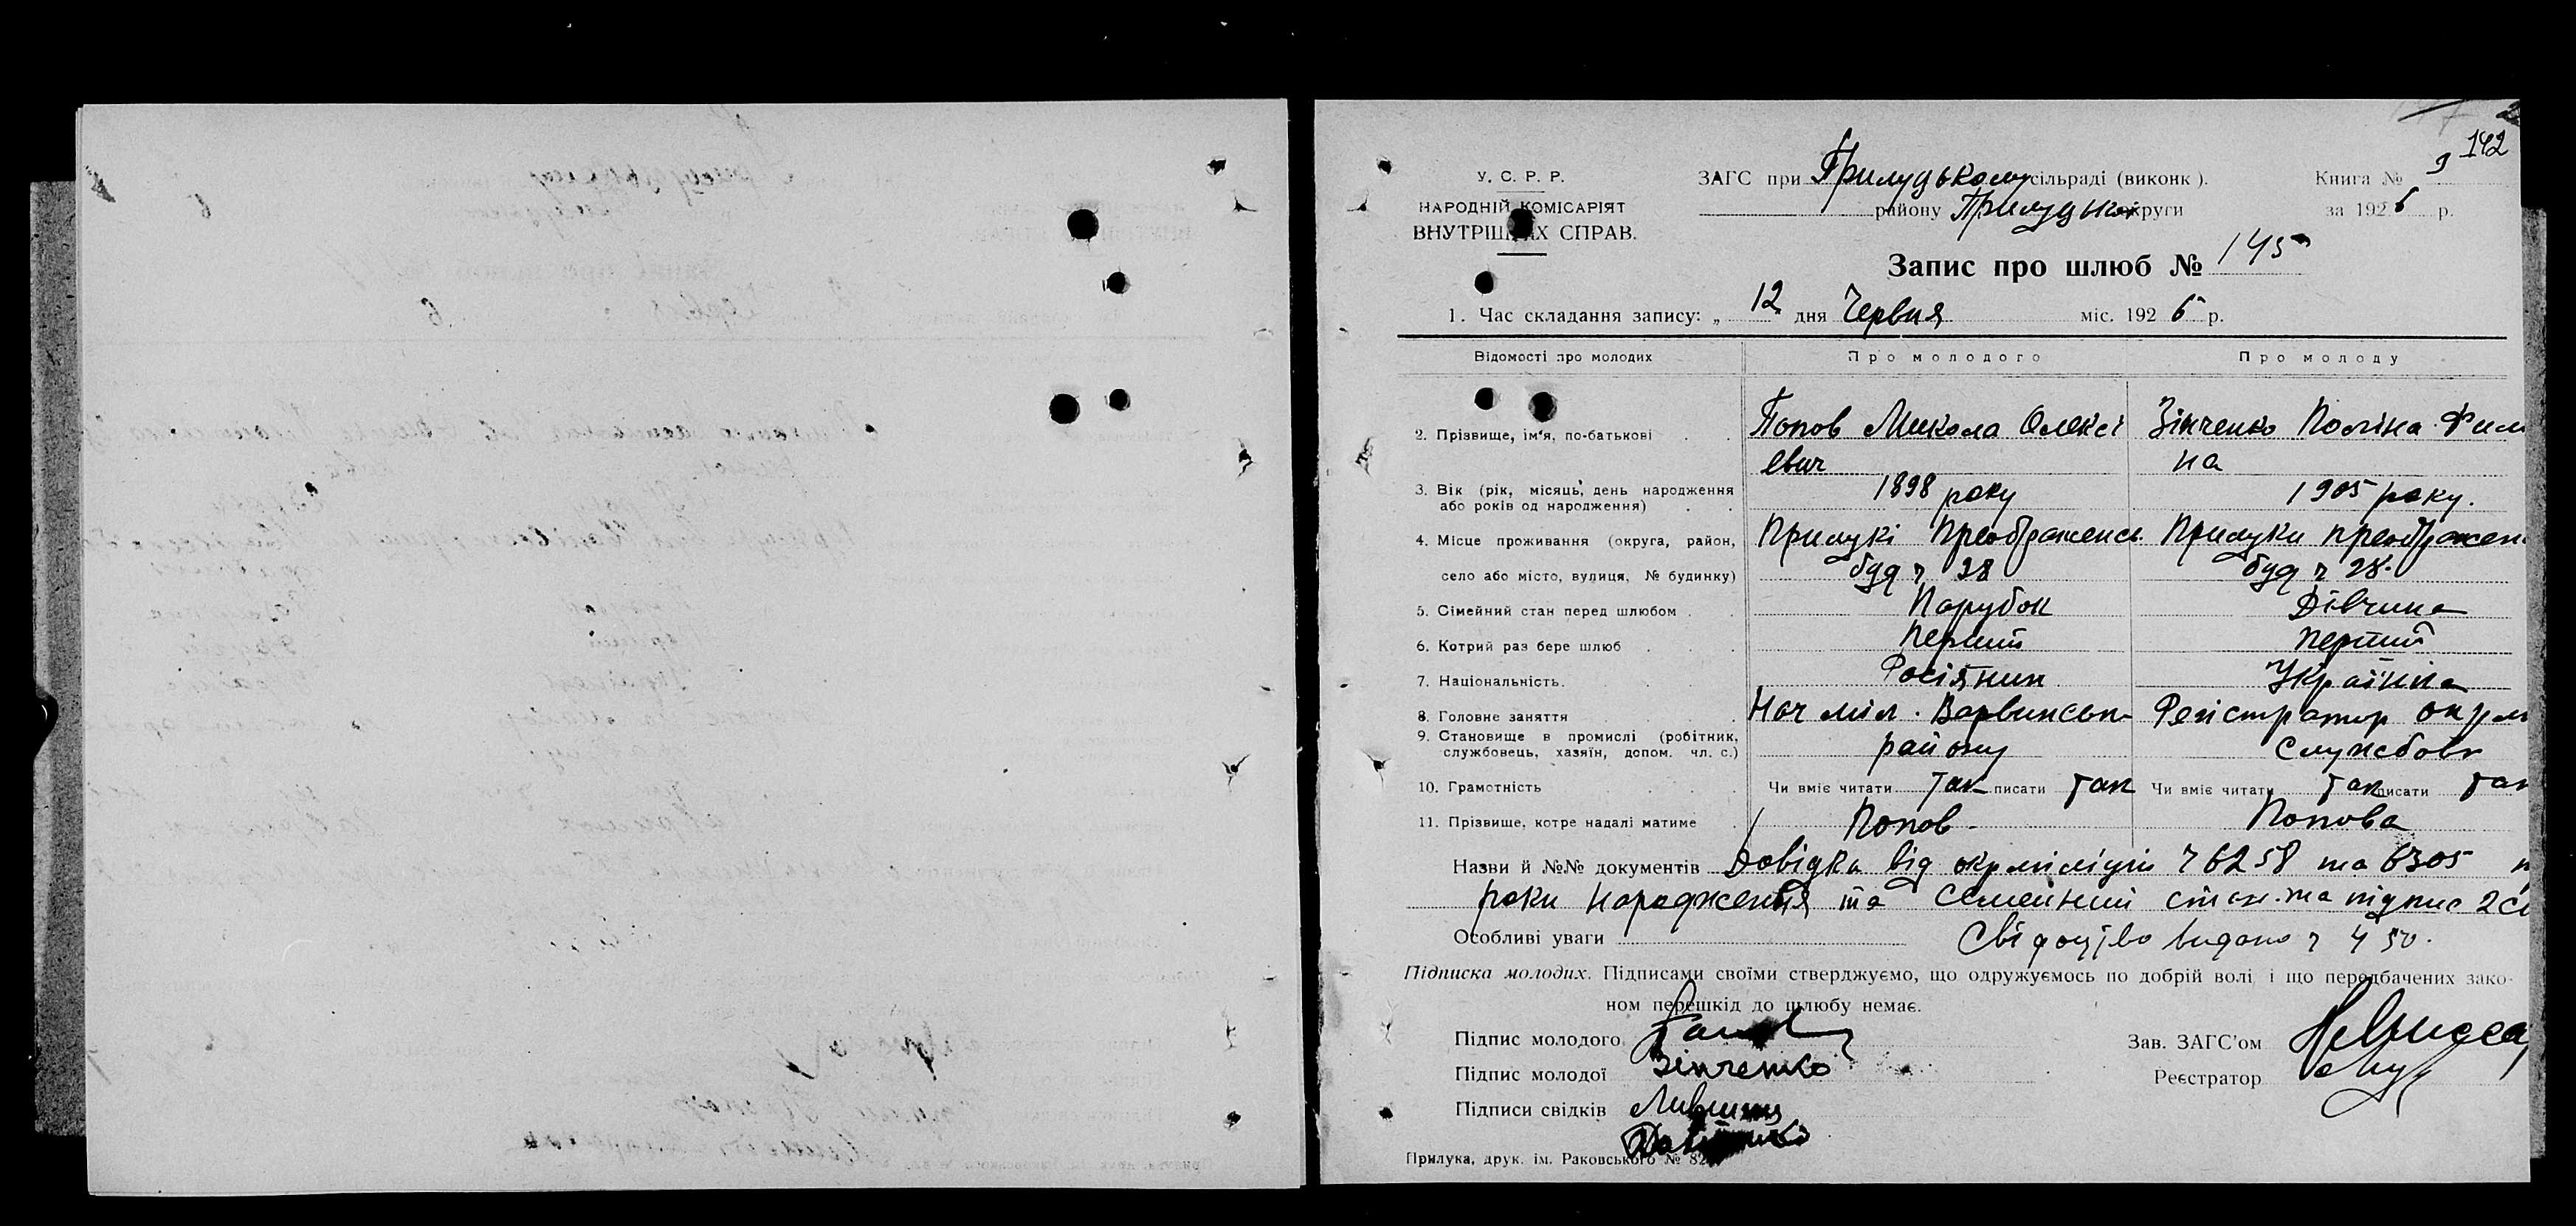 142
У. С. Р. Р.
НАРОДНІЙ КОМІСАРІЯТ
ВНУТРІШНІХ СПРАВ.
ЗАГС при Прилуцькому сільраді (виконк).
району Прилуцької округи
Книга № 9
за 1926 р.
Запис про шлюб № 145
1. Час складання запису: „ 12 " дня Червня міс. 1926 р.
Відомості про молодих Про молодого Про молоду
2. Прізвище, ім'я, по-батькові Попов Микола Олексі Зінченко Поліна Фили
евич на
3. Вік (рік, місяць, день народження 1898 року 1905 року.
або років од народження)
4. Місце проживання (округа, район, Прилукі Преображенсь Прилуки преображен
село або місто, вулиця, № будинку) буд ч 28 буд ч 28.
5. Сімейний стан перед шлюбом Парубок Дівчина
6. Котрий раз бере шлюб перший перший
7. Національність. Росіянин Українка
8. Головне заняття Нач міл. Варвинськ Регістратор окрм
9. Становище в промислі (робітник, району Службовк
службовець, хазяїн, допом. чл. с.)
10. Грамотність Чи вміє читати так писати так Чи вміє читати так писати так
11. Прізвище, котре надалі матиме Попов. Попова
Назви й №№ документів Довідка від окрміліціи ч 6258 та 6305
роки народження та семейний стан та підпис 2
Особливі уваги Свідоцтво видано ч 450.
Підписка молодих. Підписами своїми стверджуємо, що одружуємось по добрій волі і що передбачених зако-
ном перешкід до шлюбу немає.
Підпис молодого
Зав. ЗАГС'ом
Підпис молодої Зінченко
Реєстратор
Підписи свідків
Прилука, друк. ім. Раковського № 82